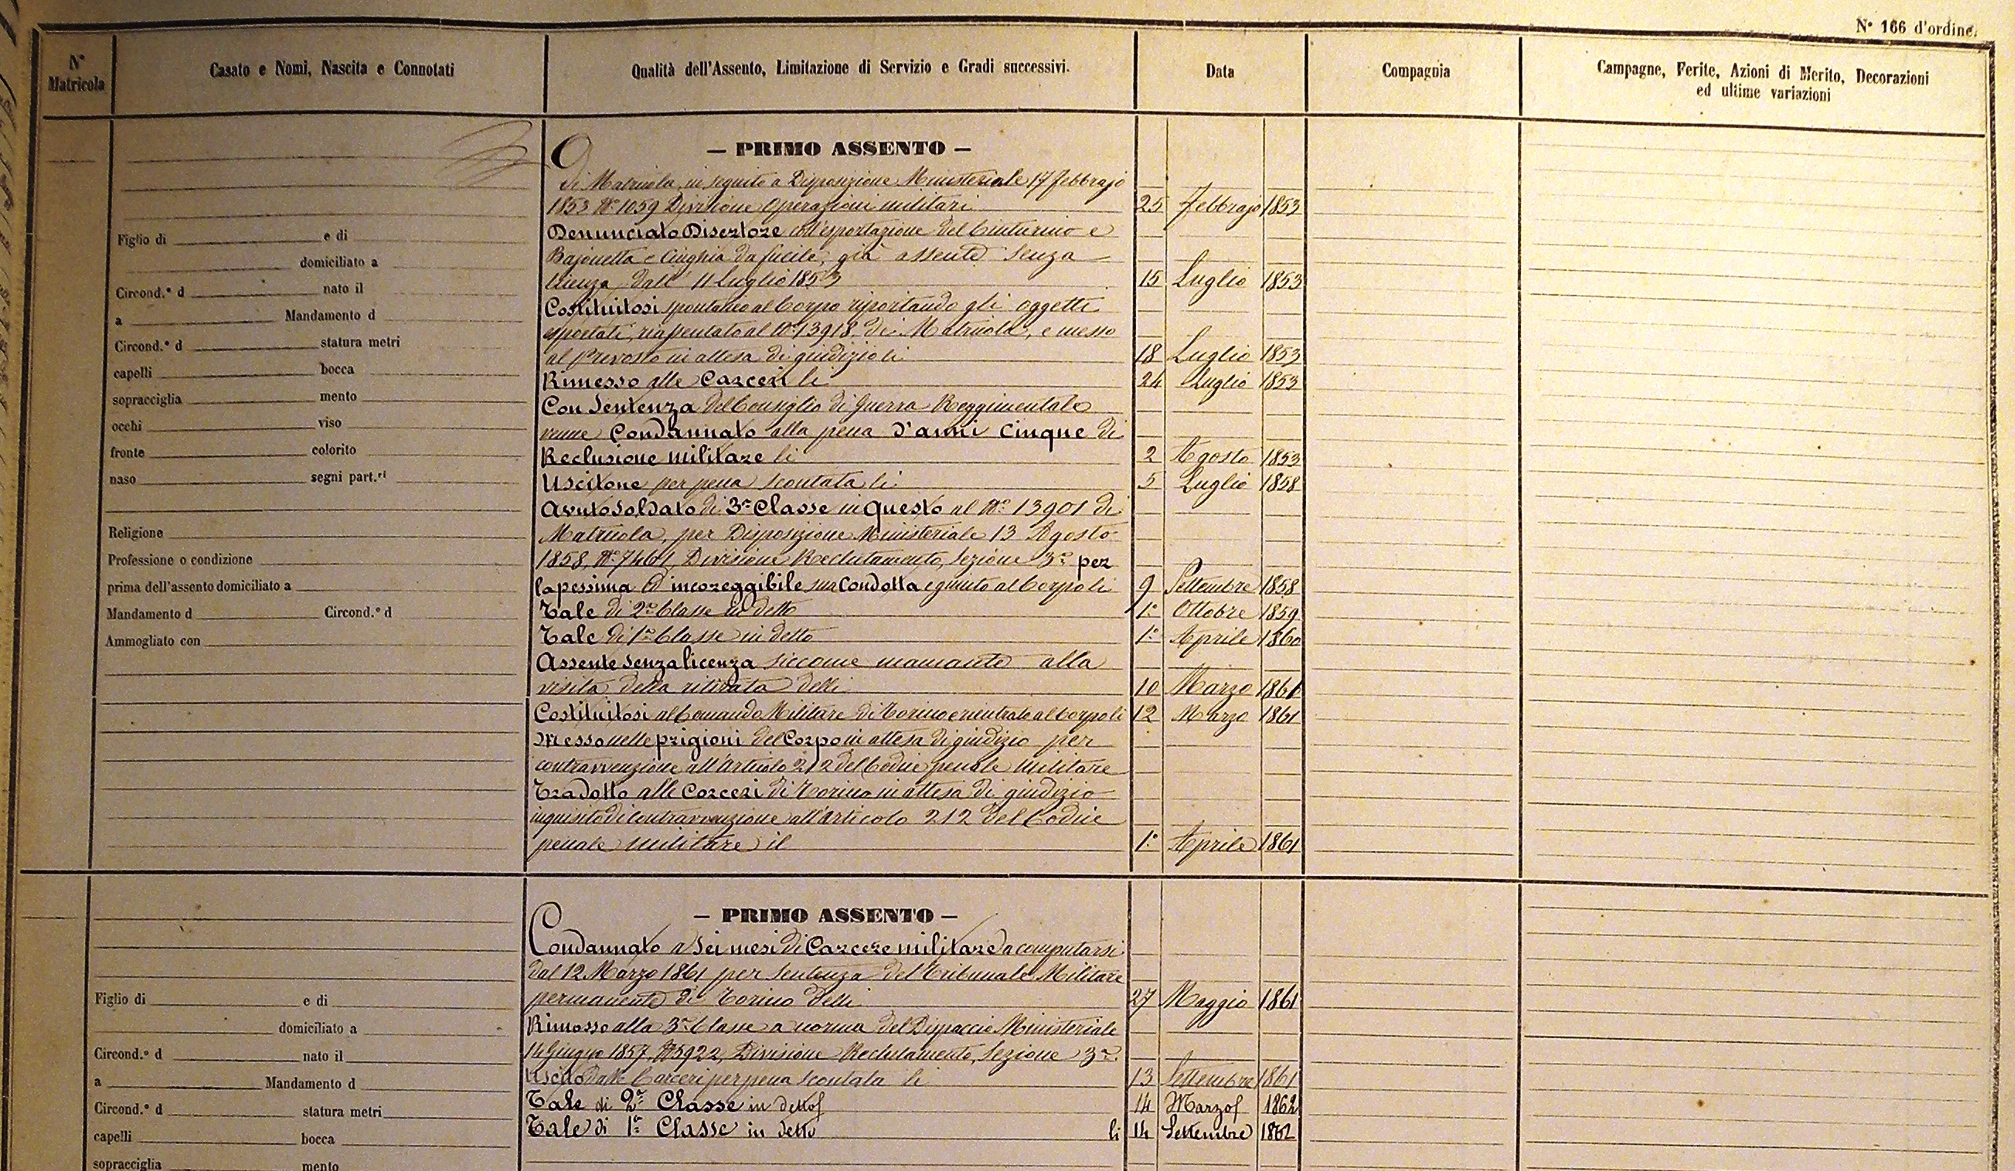 N° 166 d'ordine.
N° Matricola
Casato e Nomi, Nascita e Connotati
Qualità dell'Assento, Limitazione di Servizio e Gradi successivi.
Data
Compagnia
Campagne, Ferite, Azioni di Merito, Decorazioni
ed ultime variazioni
— PRIMO ASSENTO —
di Matricola, in seguito a Disposizione Ministeriale 17 febbrajo
1853 N° 1059 Divisione Operazioni militari 25 febbrajo 1853
Denunciato Disertore coll'esportazione del Cinturino e
Bajonetta e Cinghia da fucile, già assente senza
licenza dall' 11 Luglio 1853 15 Luglio 1853
Costituitosi spontaneo al Corpo riportando gli oggetti
esportati, riapuntato al N° 13918 di Matricola, e messo
al Prevosto in attesa di giudizio li 18 Luglio 1853
Rimesso alle Carceri li 24 Luglio 1853
Con Sentenza del Consiglio di Guerra Reggimentale
venne Condannato alla pena d'anni cinque di
Reclusione militare li 2 Agosto 1853
Uscitone per pena scontata li 5 Luglio 1858
Avuto Soldato di 3ª Classe in Questo al N° 13901 di
Matricola, per Disposizione Ministeriale 13 Agosto
1858, N° 7461, Divisione Reclutamento, Sezione 3ª per
la pessima ed incoreggibile sua Condotta e giunto al Corpo li 9 Settembre 1858
Tale di 2ª Classe in detto 1° Ottobre 1859
Tale di 1ª Classe in detto 1° Aprile 1860
Assente senza licenza siccome mancante alla
visita della ritirata delli 10 Marzo 1861
Costituitosi al Comando Militare di Torino e rientrato al Corpo li 12 Marzo 1861
Messo nelle prigioni del Corpo in attesa di giudizio per
contravvenzione all'Articolo 212 del Codice penale Militare
Tradotto alle Carceri di Torino in attesa di giudizio
inquisito di contravvenzione all'articolo 212 del Codice
penale militare il 1° Aprile 1861
Figlio di e di
domiciliato a
Circond.° d nato il
a Mandamento d
Circond.° d statura metri
capelli bocca
sopracciglia mento
occhi viso
fronte colorito
naso segni part.ri
Religione
Professione o condizione
prima dell'assento domiciliato a
Mandamento d Circond.° d
Ammogliato con
— PRIMO ASSENTO —
Condannato a Sei mesi di Carcere militare a computarsi
dal 12 Marzo 1861 per Sentenza del Tribunale Militare
permanente di Torino delli 27 Maggio 1861
Rimosso alla 3ª Classe a norma del Dispaccio Ministeriale
14 Giugno 1857, N° 5922, Divisione Reclutamento, Sezione 3ª
Uscito dalle Carceri per pena scontata li 13 Settembre 1861
Tale di 2ª Classe in detto 14 Marzo 1862
Tale di 1ª Classe in detto li 14 Settembre 1862
Figlio di e di
domiciliato a
Circond.° d nato il
a Mandamento d
Circond.° d statura metri
capelli bocca
sopracciglia mento